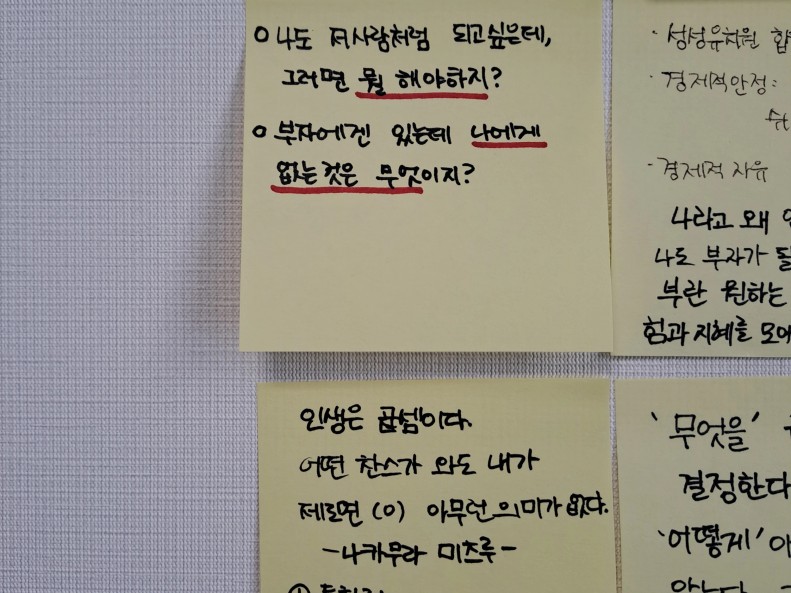 o 나도 저사람처럼 되고싶은데,
그러면 뭘 해야하지?
o 부자에겐 있는데 나에게
없는것은 무엇이지?
· 성성유지원
· 경제적안정:
· 경제적 자유
나라고 왜
나도 부자가
부란 원하는
힘과 지혜를
인생은 곱셈이다.
어떤 찬스가 와도 내가
제로면 (0) 아무런 의미가 없다.
-나카무라 미츠루-
'무엇을'
결정한다
'어떻게'